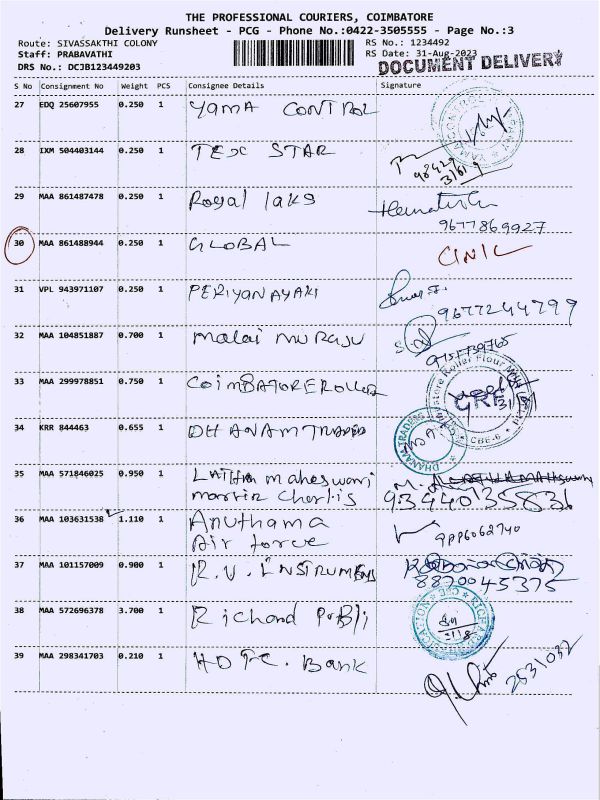 THE PROFESSIONAL COURIERS, COIMBATORE
Delivery Runsheet - PCG - Phone No.:0422-3505555 - Page No.:3
Route: SIVASSAKTHI COLONY
RS No.: 1234492
Staff: PRABAVATHI
RS Date: 31-Aug-2023
DRS No.: DCJB123449203
DOCUMENT DELIVERY
S No Consignment No Weight PCS Consignee Details Signature
27 EDQ 25607955 0.250 1 YAMA CONTROL
28 IXM 504403144 0.250 1 TEX STAR
29 MAA 861487478 0.250 1 Royal laks
9677869927
30 MAA 861488944 0.250 1 GLOBAL
31 VPL 943971107 0.250 1 PERIYANAYAKI
9677244799
32 MAA 104851887 0.700 1 malai MURAJU
33 MAA 299978851 0.750 1 COIMBATORE ROLLER
CBE-6
34 KRR 844463 0.655 1 DHANAM TRADERS
DHANAM TRADERS
35 MAA 571846025 0.950 1 LATHA maheswari
martin Charlis 9344035836
36 MAA 103631538 1.110 1 Anuthama
Air force
37 MAA 101157009 0.900 1 R.V. INSTRUMENTS
8870045375
38 MAA 572696378 3.700 1 Richand Publi
39 MAA 298341703 0.210 1 HDFC. Bank
2631032